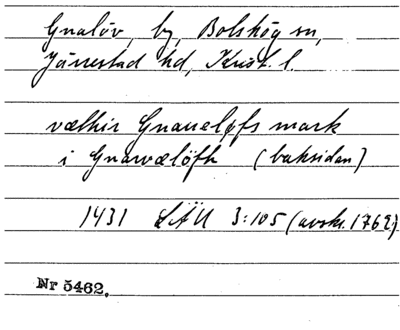 Gnalöv, by, Bolshög sn,
Järrestad hd, Krist. l.
vælhir Gnaueløfs mark
i Gnawælöfh (baksidan)
1431 LÄU 3:105 (avskr. 1762)
Nr 5462.